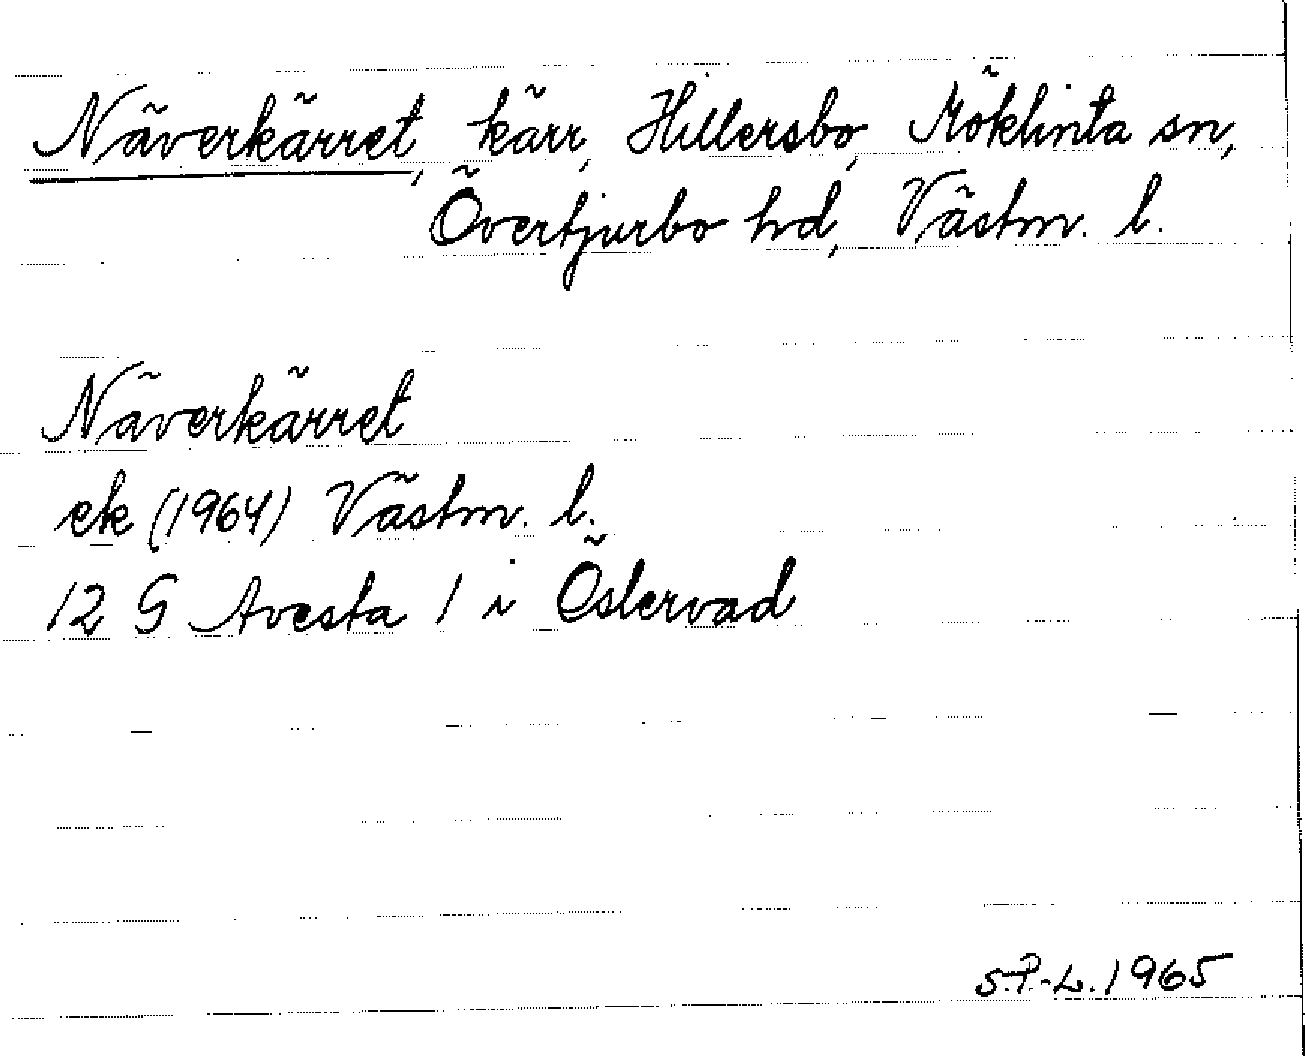 Näverkärret, kärr, Hillersbo, Möklinta sn,
Övertjurbo hd, Västm. l.
Näverkärret
ek (1964) Västm. l.
12 G Avesta 1 i Östervad
S.P.-L. 1965